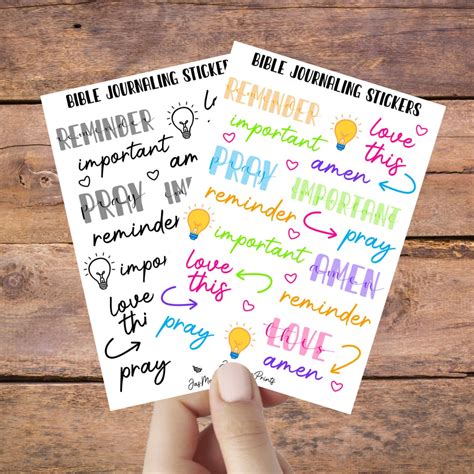 BIBLE JOURNALING STICKERS
REMINDER
reminder
important
PRAY
pray
reminder
love
pray
pray
BIBLE JOURNALING STICKERS
REMINDER
reminder
love
this
important
amen
PRAY
pray
IMPORTANT
important
reminder
pray
important
AMEN
amen
love
this
reminder
LOVE
this
pray
amen
Prints